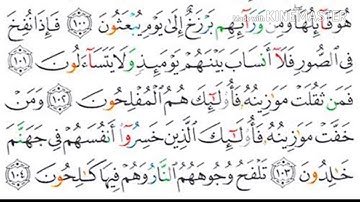 هُوَ قَآئِلُهَا وَمِن وَرَآئِهِم بَرْزَخٌ إِلَىٰ يَوْمِ يُبْعَثُونَ ١٠٠ فَإِذَا نُفِخَ
فِى ٱلصُّورِ فَلَآ أَنسَابَ بَيْنَهُمْ يَوْمَئِذٍ وَلَا يَتَسَآءَلُونَ ١٠١
فَمَن ثَقُلَتْ مَوَٰزِينُهُۥ فَأُو۟لَٰٓئِكَ هُمُ ٱلْمُفْلِحُونَ ١٠٢ وَمَنْ
خَفَّتْ مَوَٰزِينُهُۥ فَأُو۟لَٰٓئِكَ ٱلَّذِينَ خَسِرُوٓا۟ أَنفُسَهُمْ فِى جَهَنَّمَ
خَٰلِدُونَ ١٠٣ تَلْفَحُ وُجُوهَهُمُ ٱلنَّارُ وَهُمْ فِيهَا كَٰلِحُونَ ١٠٤